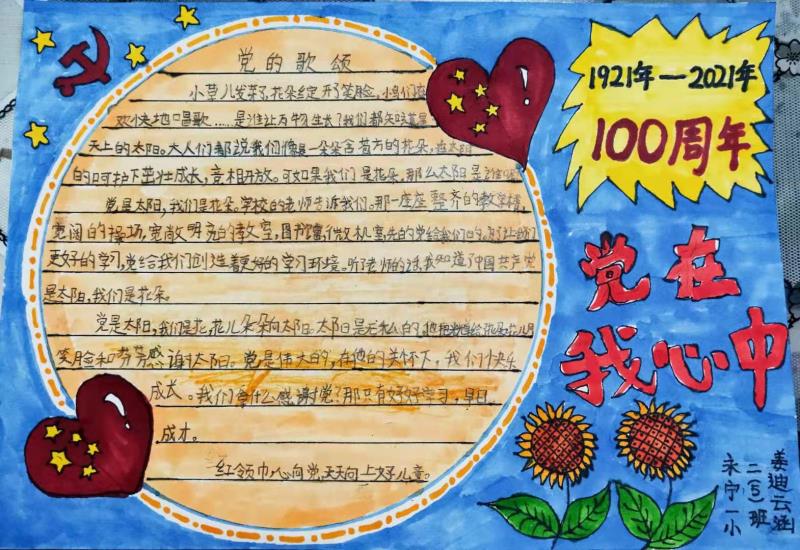 党的歌颂
小草儿发芽了,花朵绽开了笑脸,小鸟们在
欢快地唱歌……是谁让万物生长?我们都知道是
天上的太阳。大人们都说我们像是一朵朵含苞的花朵,在太阳
的呵护下茁壮成长,竞相开放。可如果我们是花朵,那么太阳是谁呢
党是太阳,我们是花朵。学校的老师告诉我们。那一座座整齐的教学楼,
宽阔的操场,宽敞明亮的教室,图书馆,微机室先的党给我们的,为了让我们
更好的学习,党给我们创造着更好的学习环境。听了老师的话,我知道了中国共产党
是太阳,我们是花朵。
党是太阳,我们是花,花儿朵朵向太阳。太阳是无私的,他把光给花朵,花儿用
笑脸和芬芳感谢太阳。党是伟大的,在他的关怀下,我们快乐
成长。我们拿什么感谢党?那只有好好学习,早日
成才。
红领巾心向党,天天向上好儿童。
1921年—2021年
100周年
党在
我心中
姜迪云涵
二(5)班
永宁一小